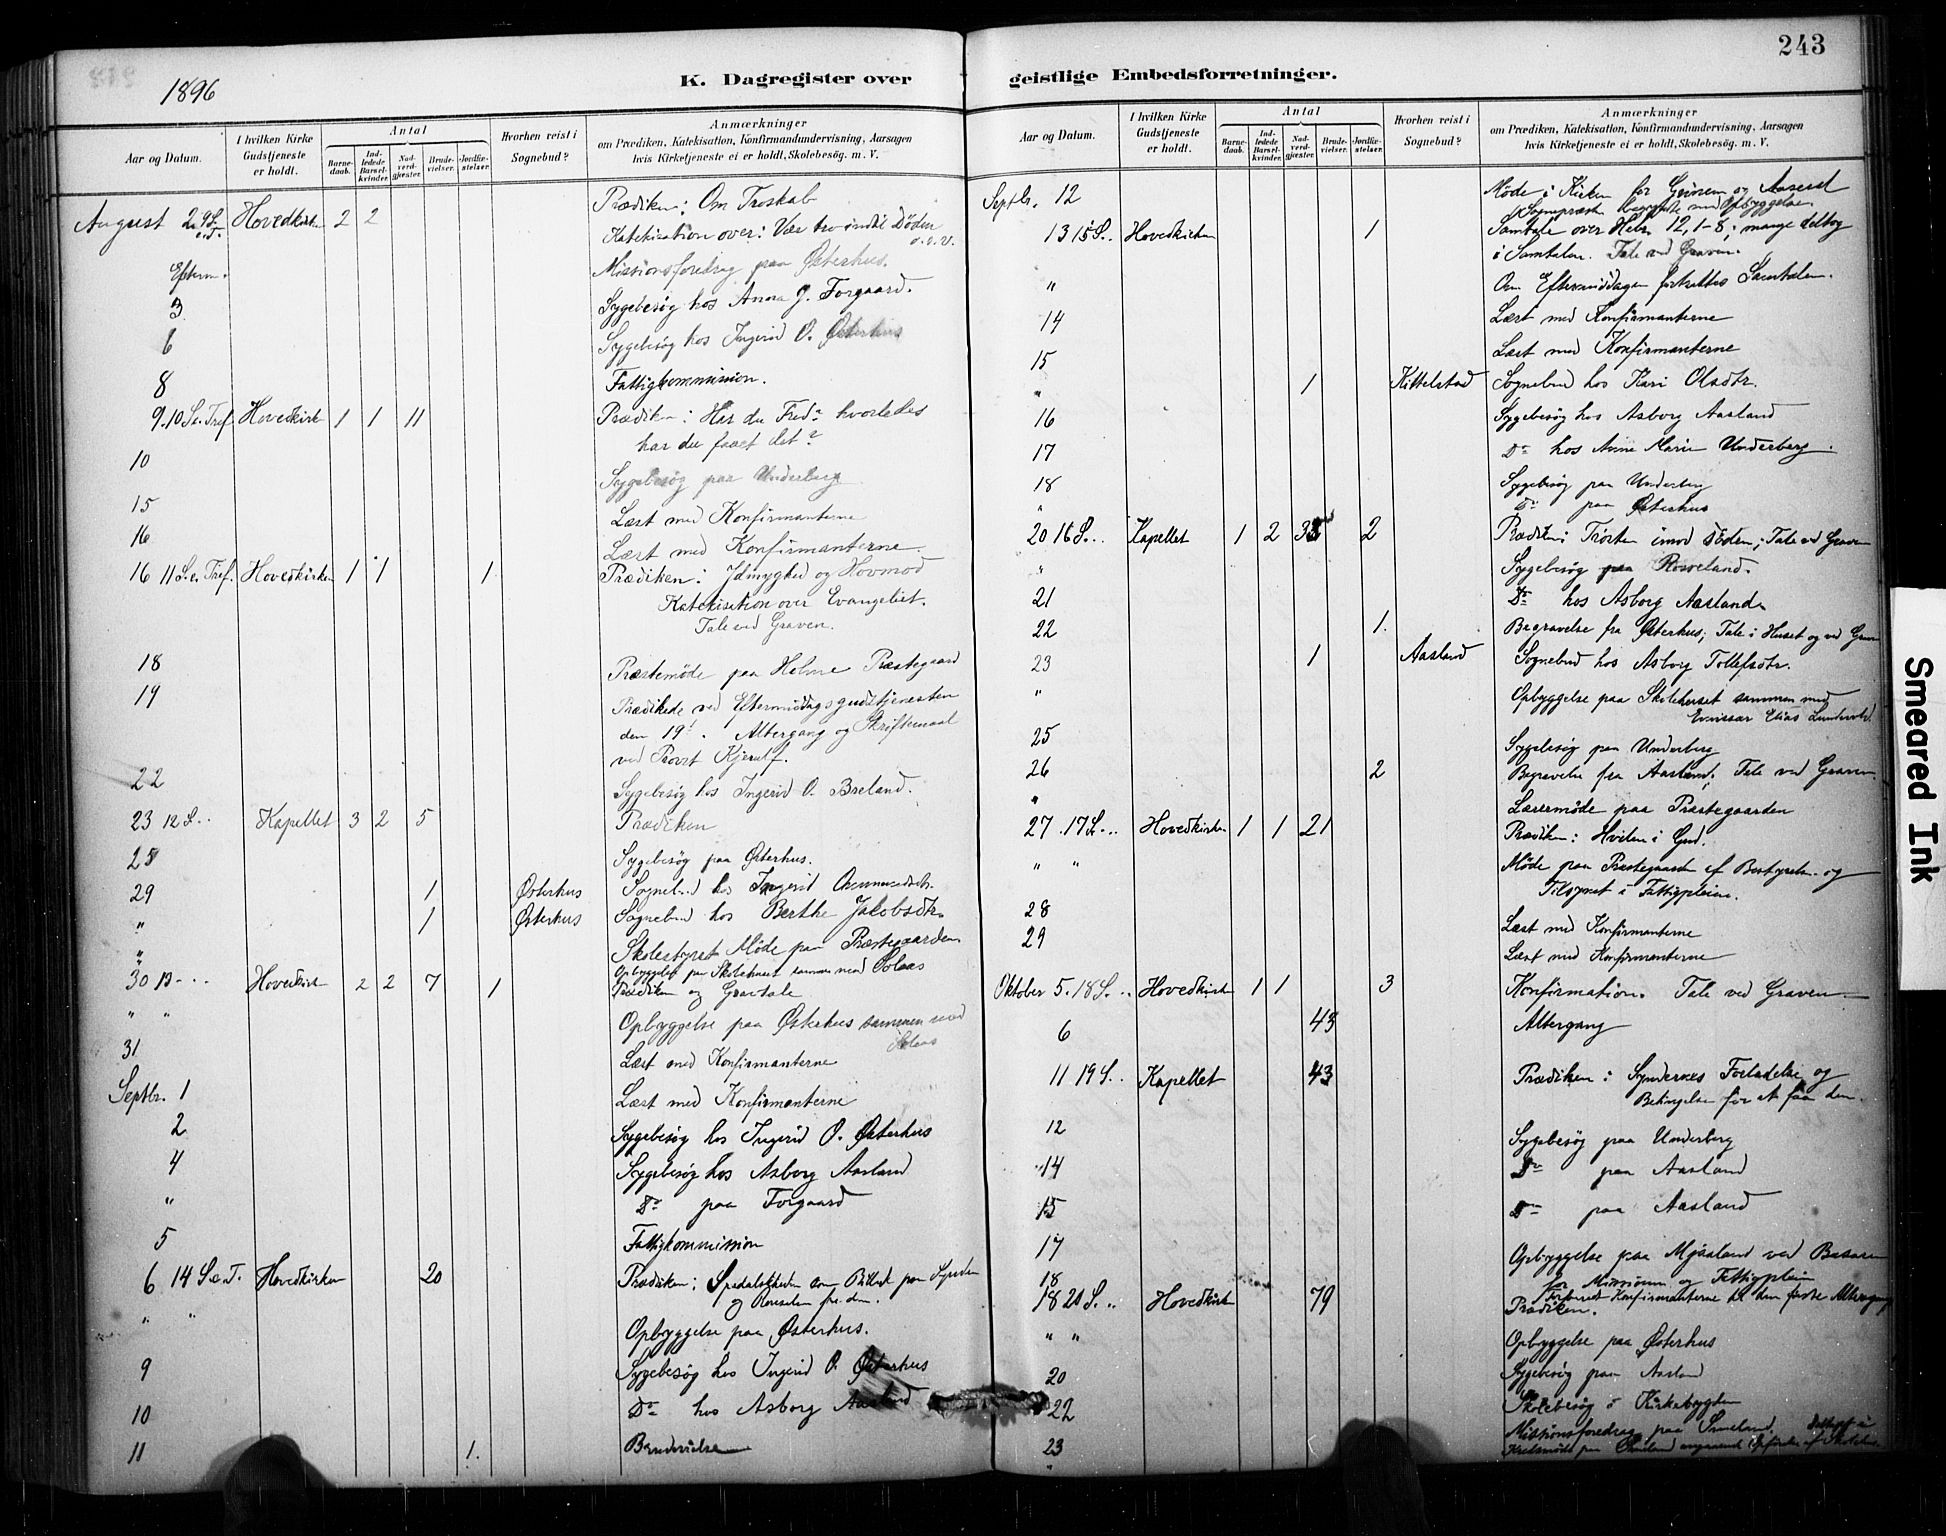 243
1896
K. Dagregister over geistlige Embedsforretninger.
Aar og Datum. I hvilken Kirke Gudstjeneste er holdt. Antal Barnedaab. Indledede Barselkvinder. Nadverdgjæster. Brudevielser. Jordfæstelser. Hvorhen reist i Sognebud? Anmærkninger om Prædiken, Katekisation, Konfirmandundervisning, Aarsagen hvis Kirketjeneste ei er holdt, Skolebesög. m. V.
August 2. 9 S. e. T. Hovedkirken 2 2 Prædiken: Om Troskab
Katekisation over: Vær tro indtil Døden
Efterm. Missionsforedrag paa Østerhus.
3 Sygebesøg hos Anna J. Forgaard.
6 Sygebesøg hos Ingerid O. Østerhus
8 Fattigkommission.
9. 10 S. e. Tref. Hovedkirk 1 1 11 Prædiken: Har du Fred? hvorledes
har du faaet det?
10 Sygebesøg paa Underberg
15 Læst med Konfirmanterne
16 Læst med Konfirmanterne.
16 11 S. e. Tref. Hovedkirken 1 1 1 Prædiken: Ydmyghed og Hovmod
Katekisation over Evangeliet.
Tale ved Graven.
18 Præstemøde paa Holme Præstegaard
19 Prædikede ved Eftermiddagsgudstjenesten
den 19. Altergang og Skriftemaal
ved Provst Kjerulf.
22 Sygebesøg hos Ingerid O. Breland.
23 12 S. .. Kapellet 3 2 5 Prædiken
25 Sygebesøg paa Østerhus.
29 1 Østerhus Sognebud hos Ingerid
" 1 Østerhus Sognebud hos Berthe Jakobsdtr.
" Skolestyret Møde paa Præstegaarden
Opbyggelse paa Skolehuset sammen med Solaas
30 13 - .. Hovedkirk 2 2 7 1 Prædiken og Gravtale
" " Opbyggelse paa Østerhus sammen med
Solaas
31 Læst med Konfirmanterne
Septbr. 1 Læst med Konfirmanterne
2 Sygebesøg hos Ingerid O. Østerhus
4 Sygebesøg hos Asborg Aasland
" Do paa Forgaard
5 Fattigkommission
6 14 S. e. T. Hovedkirken 20 Prædiken: Spedalskheden som Billede paa Synden
og Renselsen fra den.
" " Opbyggelse paa Østerhus.
9 Sygebesøg hos Ingerid O. Østerhus
10 Do hos Asborg Aasland
11 1. Brudevielse
Aar og Datum. I hvilken Kirke Gudstjeneste er holdt. Antal Barnedaab. Indledede Barselkvinder. Nadverdgjæster. Brudevielser. Jordfæstelser. Hvorhen reist i Sognebud? Anmærkninger om Prædiken, Katekisation, Konfirmandundervisning, Aarsagen hvis Kirketjeneste ei er holdt, Skolebesög. m. V.
Septbr. 12 Møde i Kirken for og Aaseral
Sognepræst begyndte med Opbyggelse
13 15 S. .. Hovedkirken 1 Samtale over Hebr. 12, 1-8; mange deltog
i Samtalen. Tale ved Graven.
" Om Eftermiddagen fortsattes Samtalen.
14 Læst med Konfirmanterne
15 Læst med Konfirmanterne
" 1 Kittelstad Sognebud hos Kari Olsdtr.
16 Sygebesøg hos Asborg Aasland
17 Do hos Anne Marie Underberg.
18 Sygebesøg paa Underberg
" Do paa Østerhus
20 16 S. .. Kapellet 1 2 2 Prædiken: Trøsten imod Døden; Tale ved Graven
" Sygebesøg paa Rosseland.
21 Do hos Asborg Aasland
22 1. Begravelse fra Østerhus; Tale i Huset og ved Graven
23 1 Aasland Sognebud hos Asborg Tollefsdtr.
" Opbyggelse paa Skolehuset sammen med
Emissær Elias
25 Sygebesøg paa Underberg
26 2 Begravelse fra Aasland; Tale ved Graven.
" Lærermøde paa Præstegaarden
27. 17 S. .. Hovedkirken 1 1 21 Prædiken: Hvilen i Gud.
" " Møde paa Præstegaarden af Bestyrelse og
Tilsynet i Fattigpleien.
28 Læst med Konfirmanterne
29 Læst med Konfirmanterne
Oktober 5. 18 S. .. Hovedkirk 1 1 3 Konfirmation. Tale ved Graven
6 43 Altergang
11 19 S. .. Kapellet 43 Prædiken: Syndernes Forladelse og
Betingelse for at faa den.
12 Sygebesøg paa Underberg
14 Do paa Aasland
15 Do paa Aasland
17 Opbyggelse paa Mjaaland ved Basaren
for Missionen og Fattigpleien
18 Forberedt Konfirmanterne til den første Altergang
18 20 S. .. Hovedkirk 79 Prædiken.
" " Opbyggelse paa Østerhus
20 Sygebesøg paa Aasland
22 Skolebesøg i Kirkebygden
23 Missionsforedrag paa Smeland.
Smeared Ink